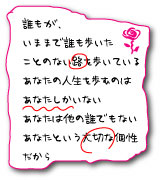 誰もが、
いままで誰も歩いた
ことのない路を歩いている
あなたの人生を歩むのは
あなたしかいない
あなたは他の誰でもない
あなたという大切な個性
だから